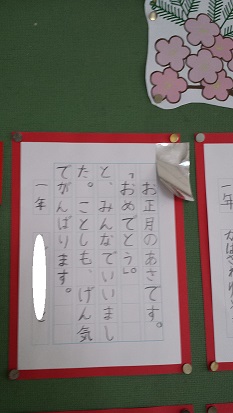 お正月のあさです。
「おめでとう。」
と、みんなでいいまし
た。ことしも、げん気
でがんばります。
一年
一年